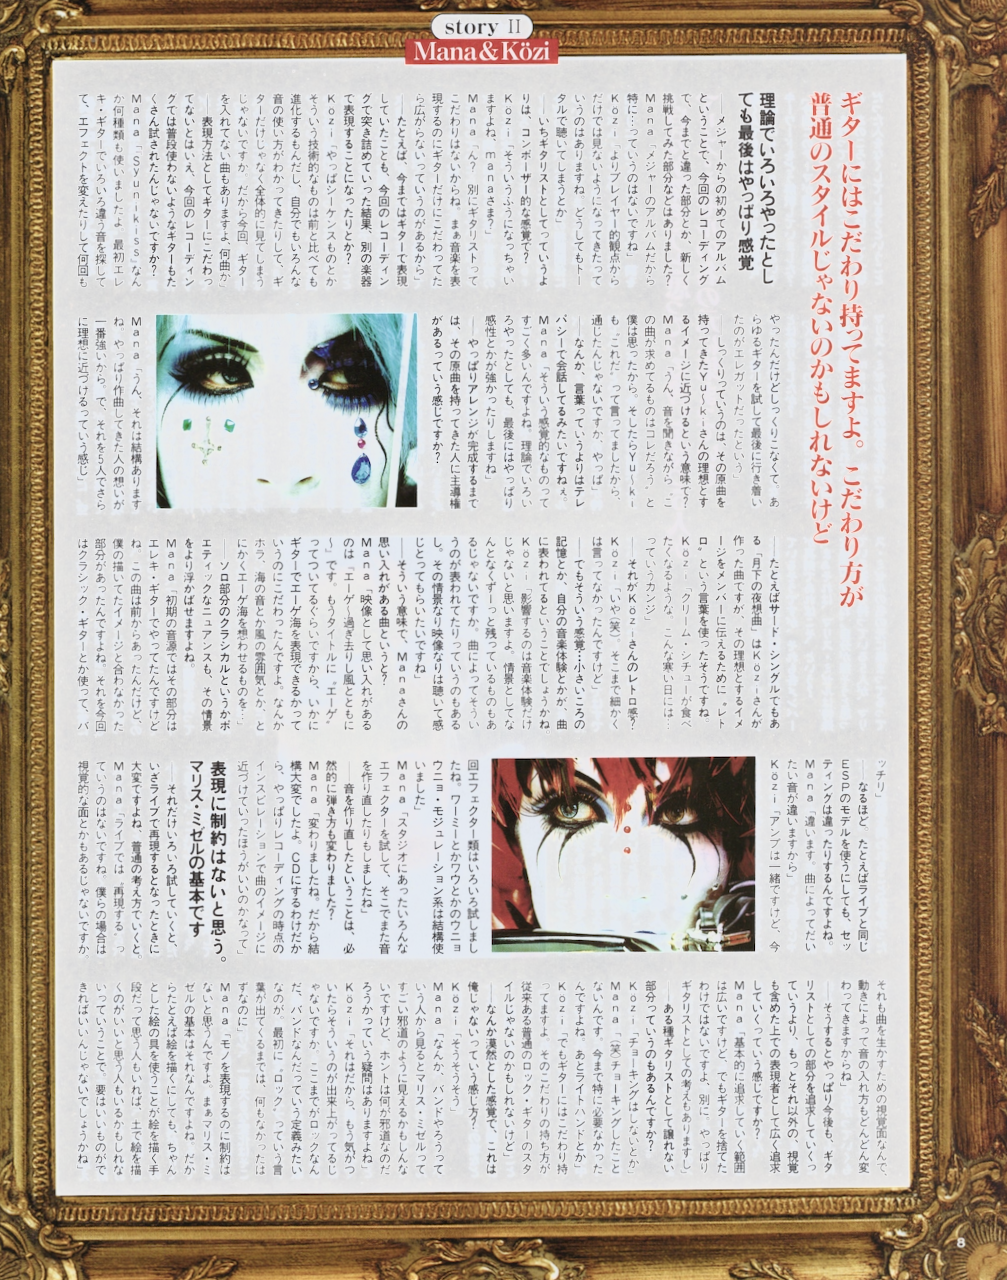 story II
Mana&Közi
ギターにはこだわり持ってますよ。こだわり方が
普通のスタイルじゃないのかもしれないけど
理論でいろいろやったとし
ても最後はやっぱり感覚
――メジャーからの初めてのアルバム
ということで、今回のレコーディング
で、今までと違った部分とか、新しく
挑戦してみた部分などはありました?
Mana「メジャーのアルバムだから
特に…っていうのはないですね」
Közi「よりプレイヤー的観点から
だけでは見ないようになってきたって
いうのはありますね。どうしてもトー
タルで聴いてしまうとか」
――いちギタリストとしてっていうよ
りは、コンポーザー的な感覚で?
Közi「そういうふうになっちゃい
ますよね、manaさま?」
Mana「ん? 別にギタリストって
こだわりはないからね。まぁ音楽を表
現するのにギターだけにこだわってた
ら広がらないっていうのがあるから」
――たとえば、今まではギターで表現
していたことも、今回のレコーディン
グで突き詰めていった結果、別の楽器
で表現することになったりとか?
Közi「やっぱシーケンスものとか
そういう技術的なものは前と比べても
進化するもんだし、自分でもいろんな
音の使い方がわかってきたりして、ギ
ターだけじゃなく全体的に見てしまう
じゃないですか。だから今回、ギター
を入れてない曲もありますよ、何曲か」
――表現方法としてギターにこだわっ
てないとはいえ、今回のレコーディン
グでは普段使わないようなギターもた
くさん試されたんじゃないですか?
Mana「『Syunikiss』なん
か何種類も使いましたよ。最初エレ
キ・ギターでいろいろ違う音を探して
て、エフェクトを変えたりして何回も
やったんだけどしっくりこなくて、あ
らゆるギターを試して最後に行き着い
たのがエレガットだったという」
――しっくりっていうのは、その原曲を
持ってきたYu〜kiさんの理想とす
るイメージに近づけるという意味で?
Mana「うん、音を聞きながら、こ
の曲が求めてるものはコレだろう、と
僕は思ったから。そしたらYu〜ki
も゛これだ゛って言ってましたから、
通じたんじゃないですか、やっぱ」
――なんか、言葉っていうよりはテレ
パシーで会話してるみたいですねぇ。
Mana「そういう感覚的なものって
すごく多いんですよね。理論でいろい
ろやったとしても、最後にはやっぱり
感性とかが強かったりしますね」
――やっぱりアレンジが完成するまで
は、その原曲を持ってきた人に主導権
があるっていう感じですか?
Mana「うん、それは結構あります
ね。やっぱり作曲してきた人の想いが
一番強いから、で、それを5人でさら
に理想に近づけるっていう感じ」
――たとえばサード・シングルでもあ
る「月下の夜想曲」はKöziさんが
作った曲ですが、その理想とするイメ
ージをメンバーに伝えるために゛レト
ロ゛という言葉を使ったそうですね
Közi「クリーム・シチューが食べ
たくなるような、こんな寒い日には…
っていうカンジ」
――それがKöziさんのレトロ感?
Közi「いや(笑)。そこまで細かく
は言ってなかったんですけど」
――でもそういう感覚・小さいころの
記憶とか、自分の音楽体験とかが、曲
に表われてるということでしょうかね
Közi「影響するのは音楽体験だけ
じゃないと思いますよ。情景としてな
んとなくずーっと残っているものもあ
るじゃないですか。曲によってそうい
うのが表われてたりっていうのもある
し。その情景なり映像なりは聴いて感
じとってもらいたいですね」
――そういう意味で、Manaさんの
思い入れがある曲というと?
Mana「映像として思い入れがある
のは『エーゲ〜過ぎ去りし風とともに
〜』です。もうタイトルに゛エーゲ゛
ってついてるぐらいですから、いかに
ギターでエーゲ海を表現できるかって
いうのにこだわったんですよ。なんか
ホラ、海の音とか風の雰囲気とか、と
にかくエーゲ海を想わせるものを…」
――ソロ部分のクラシカルというかポ
エティックなニュアンスも、その情景
をより浮かばせますよね。
Mana「初期の音源ではその部分は
エレキ・ギターでやってたんですけど
ね。この曲は前からあったんだけど、
僕の描いてたイメージと合わなかった
部分があったんですよ。それを今回
はクラシック・ギターとか使って、バ
ッチリ」
――なるほど。たとえばライブと同じ
ESPのモデルを使うにしても、セッ
ティングは違ったりするんですよね。
Mana「違います。曲によってだい
たい音が違いますから」
Közi「アンプは一緒ですけど、今
回エフェクター類はいろいろ試しまし
たね。ワーミーとかワウとかのウニョ
ウニョ・モジュレーション系は結構使
いました」
Mana「スタジオにあったいろんな
エフェクターを試して、そこでまた音
を作り直したりもしましたね」
――音を作り直したということは、必
然的に弾き方も変わりました?
Mana「変わりましたね。だから結
構大変でしたよ。CDにするわけだか
ら、やっぱりレコーディングの時点の
インスピレーションで曲のイメージに
近づけていったほうがいいのかなって」
表現に制約はないと思う。
マリス・ミゼルの基本です
――それだけいろいろ試していくと、
いざライブで再現するとなったときに
大変ですよね、普通の考え方でいくと、
Mana「ライブでは゛再現する゛っ
ていうのはないですね。僕らの場合は
視覚的な面とかもあるじゃないですか。
それも曲を生かすための視覚面なんで、
動きによって音の入れ方もどんどん変
わってきますからね」
――そうするとやっぱり今後も、ギタ
リストとしての部分を追求していくっ
ていうより、もっとそれ以外の、視覚
も含めた上での表現者として広く追求
していくっていう感じですか?
Mana「基本的に追求していく範囲
は広いですけど、でもギターを捨てた
わけではないですよ、別に。やっぱり
ギタリストとしての考えもありますし」
――ある種ギタリストとして譲れない
部分っていうのもあるんですか?
Közi「チョーキングはしないとか」
Mana「(笑)チョーキングしたこと
ないんです、今まで特に必要なかった
んですよね。あとライトハンドとか」
Közi「でもギターにはこだわり持
ってますよ。そのこだわりの持ち方が
従来ある普通のロック・ギターのスタ
イルじゃないのかもしれないけど」
――なんか漠然とした感覚で、これは
俺じゃないっていう感じ方?
Közi「そうそうそう」
Mana「なんか、バンドやろうって
いう人から見るとマリス・ミゼルって
すごい邪道のように見えるかもしれな
いですけど、ホントは何が邪道なのだ
ろうかっていう疑問はありますよね」
Közi「それはだから、もう気がつ
いたらそういうのが出来上がってるじ
ゃないですか。ここまでがロックなん
だ、バンドなんだっていう定義みたい
なのが。最初に゛ロック゛っていう言
葉が出てくるまでは、何もなかったは
ずなのに」
Mana「モノを表現するのに制約は
ないと思うんですよ。まぁマリス・ミ
ゼルの基本はそれなんですよね。だか
らたとえば絵を描くにしても、ちゃん
とした絵の具を使うことが絵を描く手
段だって思う人もいれば、土で絵を描
くのがいいと思う人もいるかもしれな
いっていうことで。要はいいものがで
きればいいんじゃないでしょうかね」
8